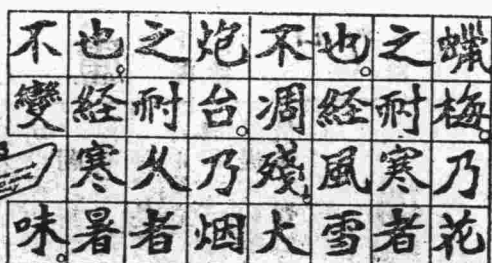 蠟梅。乃花
之耐寒者
也。経風雪
不凋殘。大
炮台。乃烟
之耐久者
也。経寒暑
不變味。